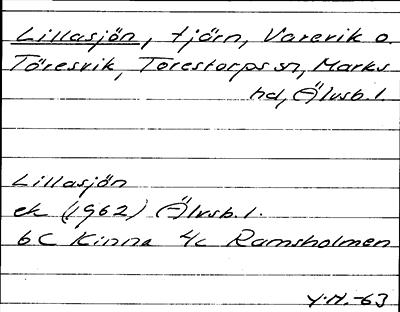 Lillasjön, tjörn, Varevik o.
Töresvik, Torestorps sn, Marks
hd, Älvsb. l.
Lillasjön
ek (1962) Älvsb. l.
6C Kinna 4c Ramsholmen
Y.H.-63